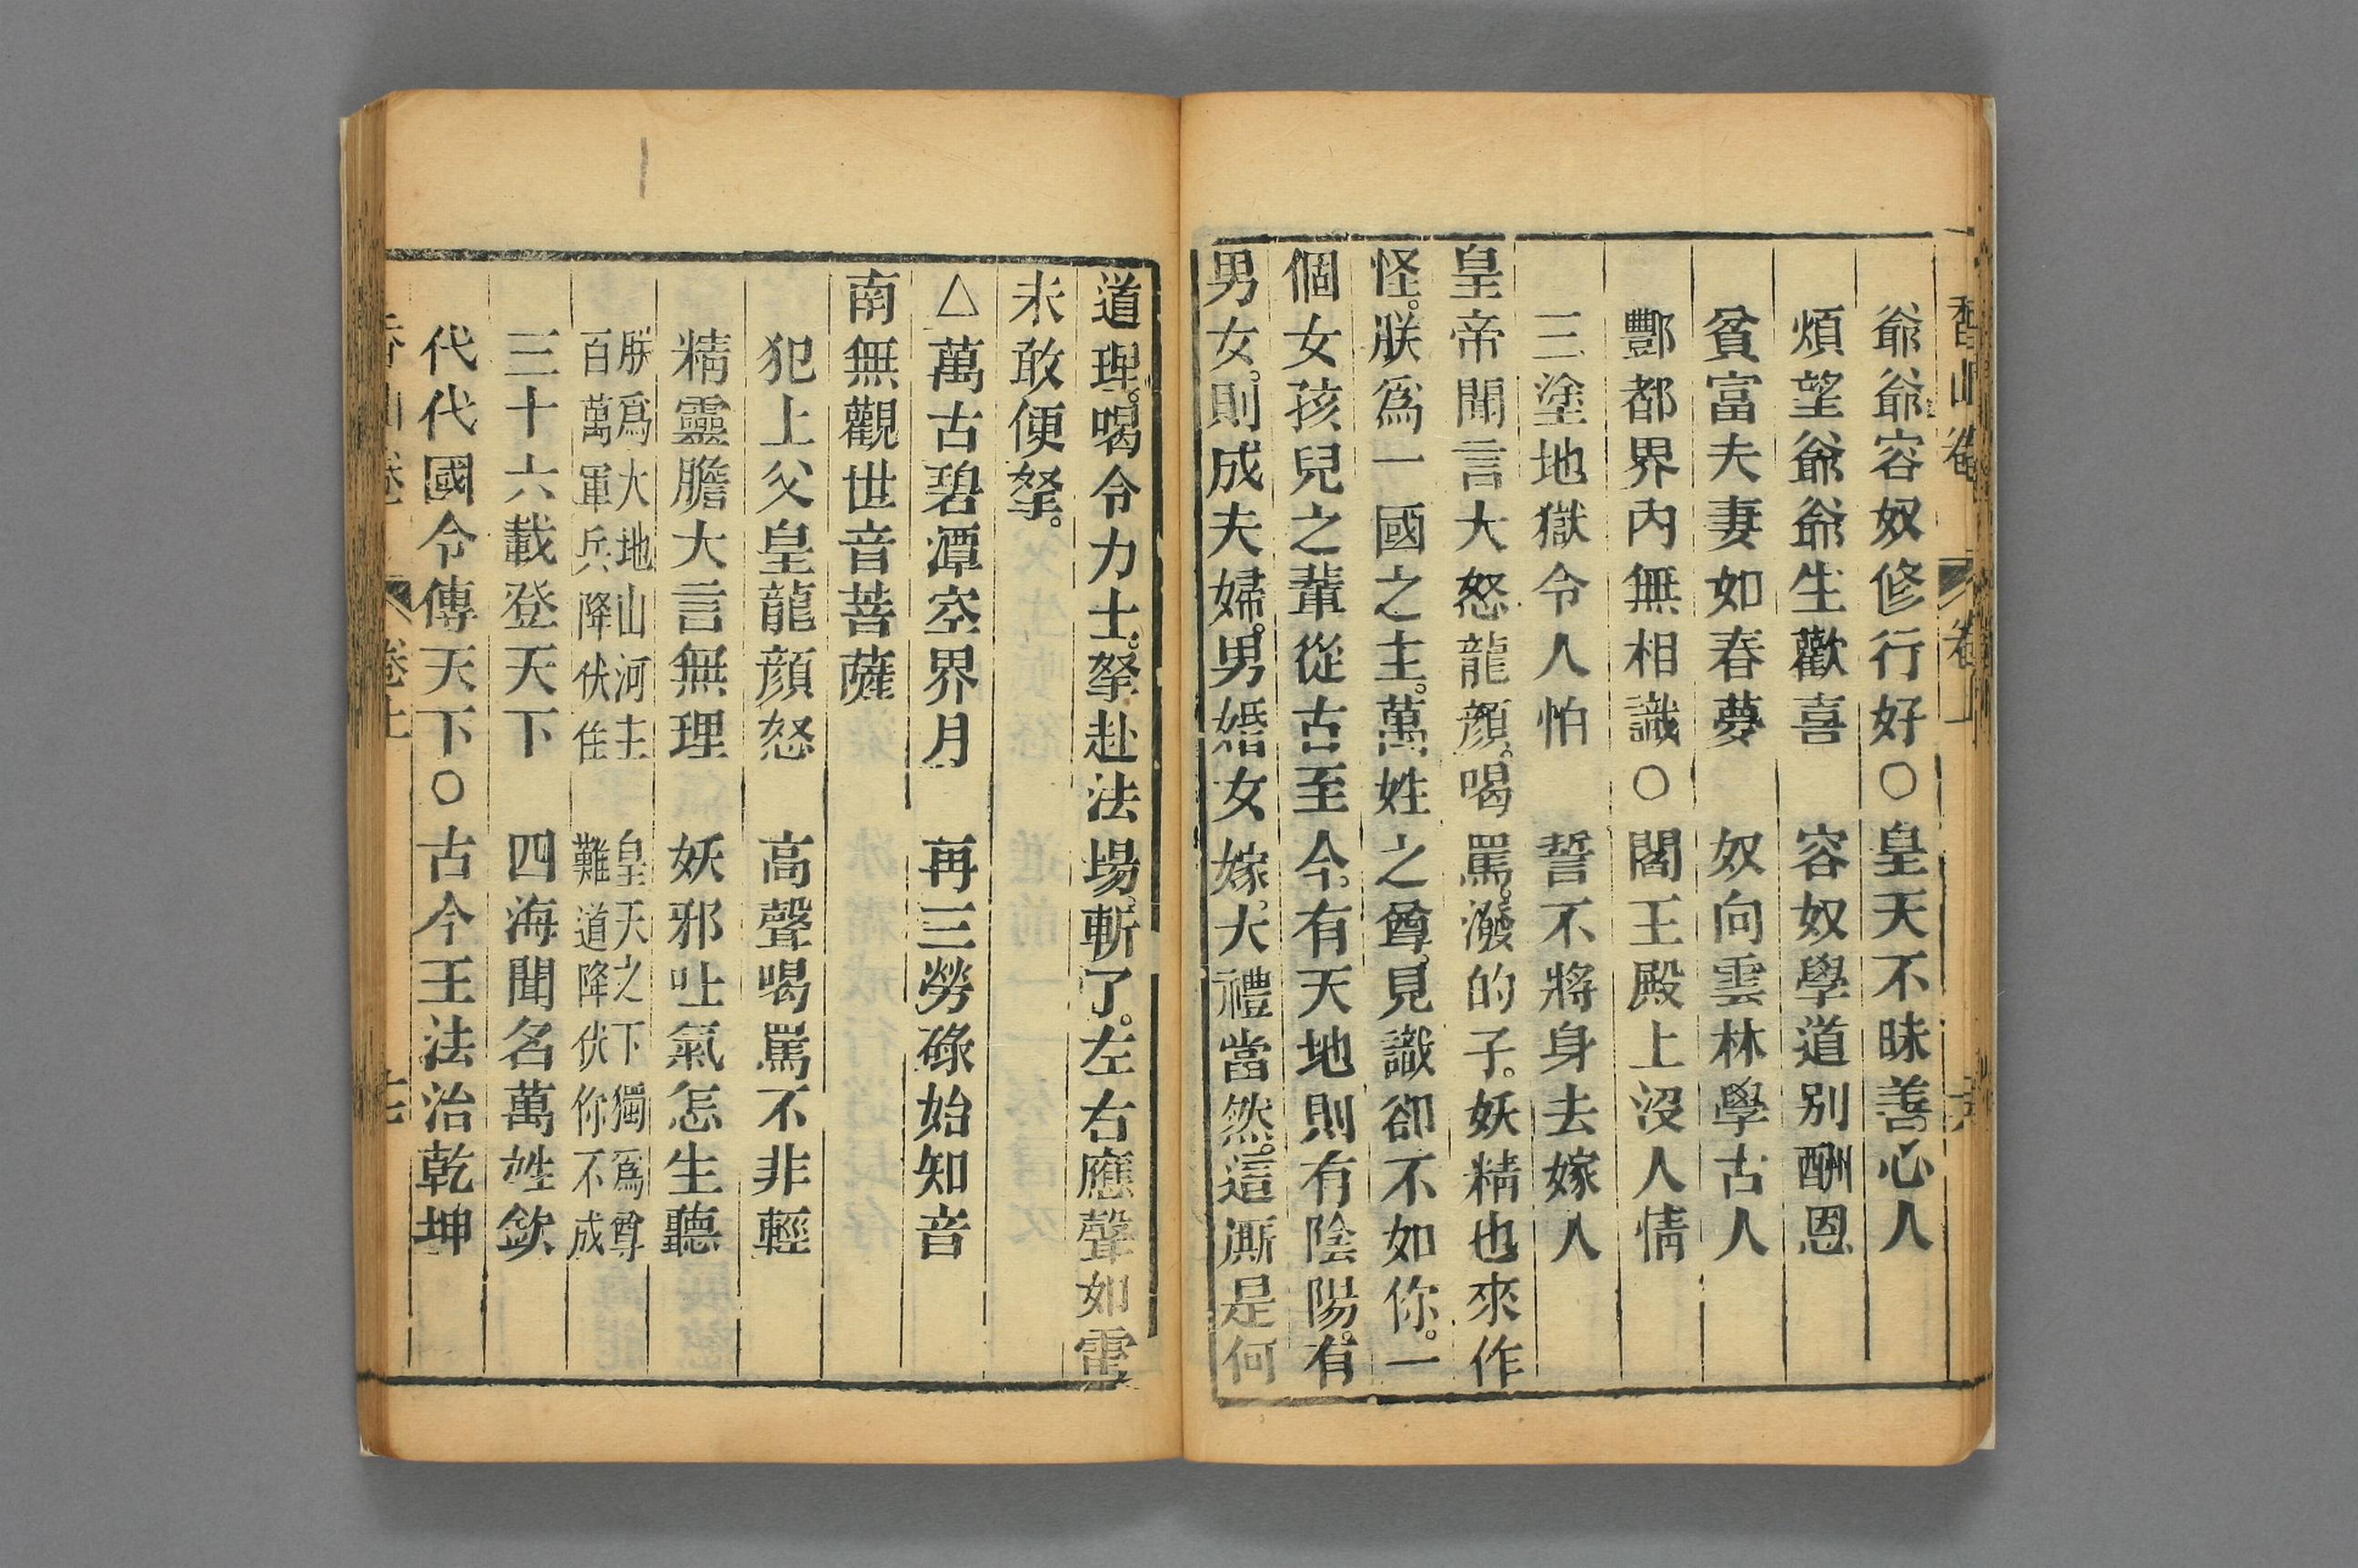 香山卷　卷上
爺爺容奴修行好○皇天不昧善心人
煩望爺爺生歡喜　容奴學道別酬恩
貧富夫妻如春夢　奴向雲林學古人
酆都界內無相識○閻王殿上沒人情
三塗地獄令人怕　誓不將身去嫁人
皇帝聞言大怒龍顏。喝罵。潑的子。妖精也來作
怪。朕爲一國之主。萬姓之尊。見識卻不如你。一
個女孩兒之輩從古至今。有天地則有陰陽。有
男女。則成夫婦。男婚女嫁。大禮當然。這厮是何
道理。喝令力士。拏赴法場。斬了。左右應聲如雷
未敢便拏。
△萬古碧潭空界月　再三勞碌始知音
南無觀世音菩薩
犯上父皇龍顏怒　高聲喝罵不非輕
精靈膽大言無理　妖邪吐氣怎生聽
朕爲大地山河主　皇天之下獨爲尊
百萬軍兵降伏住　難道降伏你不成
三十六載登天下　四海聞名萬姓欽
代代國令傳天下○古今王法治乾坤
香山卷　卷上　七